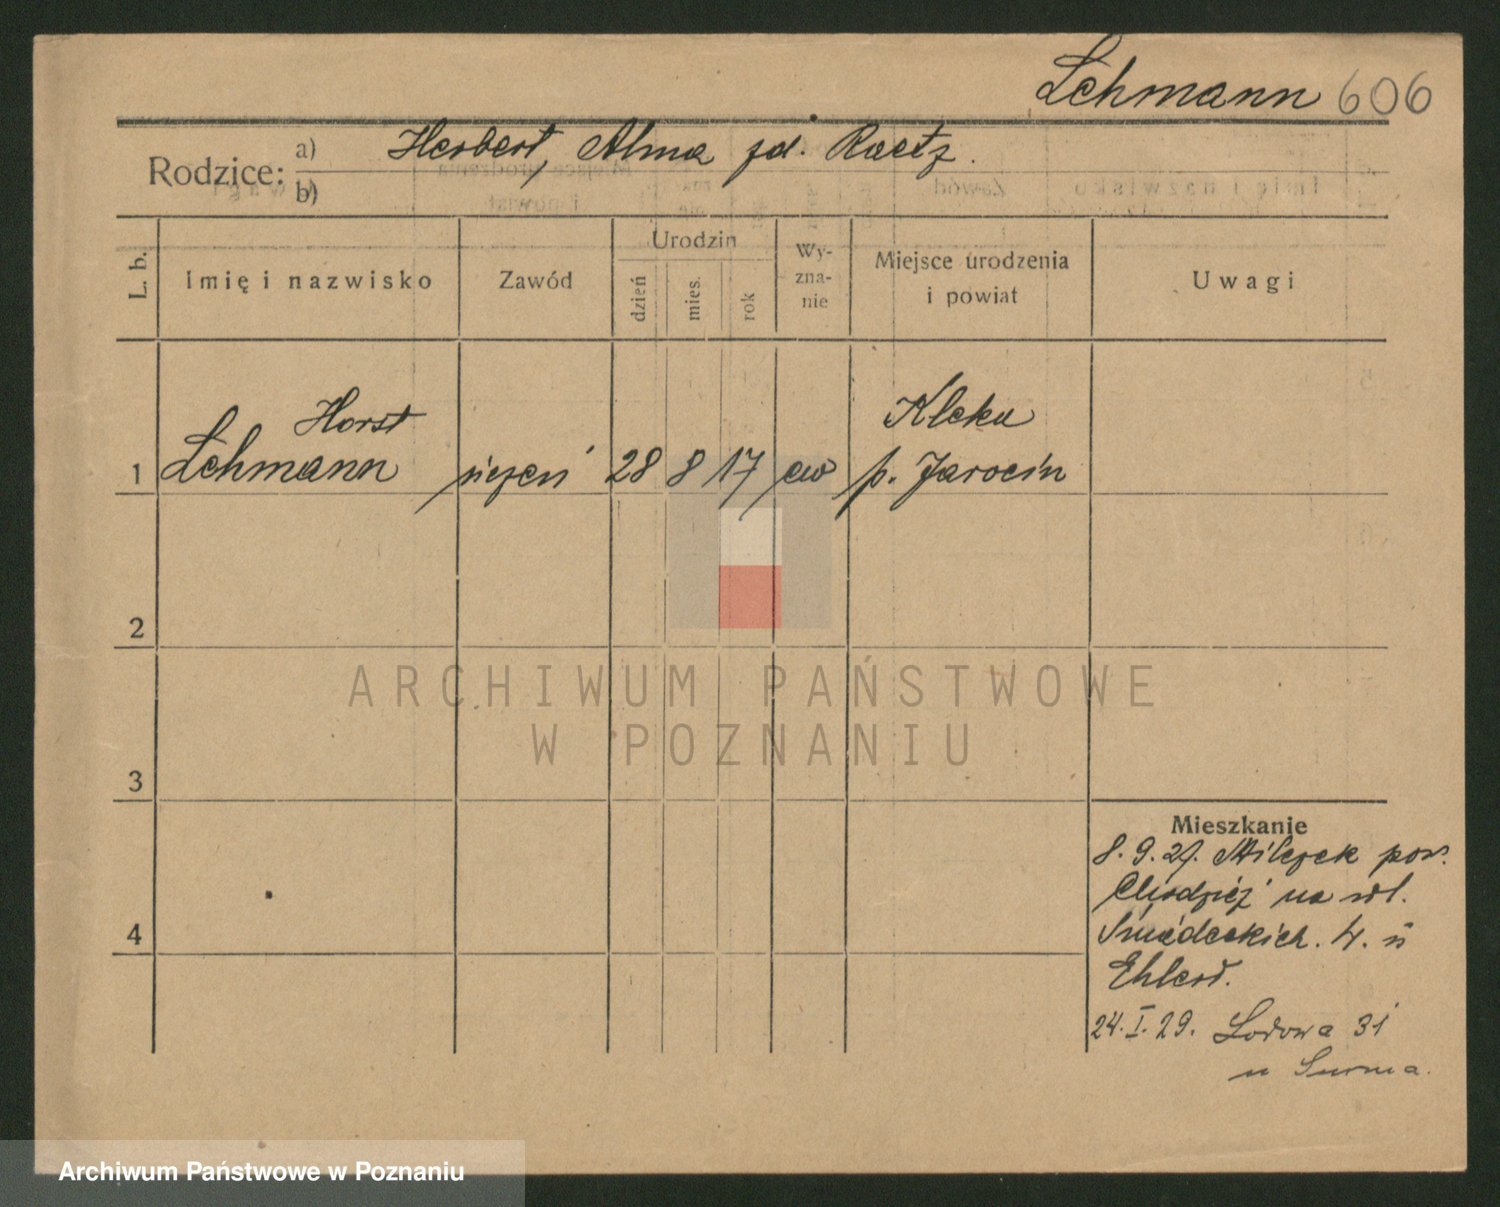 Lehmann 606
Rodzice: a) Herbert, Alma zd. Raetz.
b)
L. b. Imię i nazwisko Zawód Urodzin dzień mies. rok Wyznanie Miejsce urodzenia i powiat Uwagi
Horst Kleka
1 Lehmann uczeń 28 8 17 ew p. Jarocin
2
ARCHIWUM PAŃSTWOWE
W POZNANIU
3
Mieszkanie
8. 9. 27. pow.
Chodzież na ul.
Śniadeckich. 4. u
Ehlert.
4
24. I. 29. 31
u
Archiwum Państwowe w Poznaniu